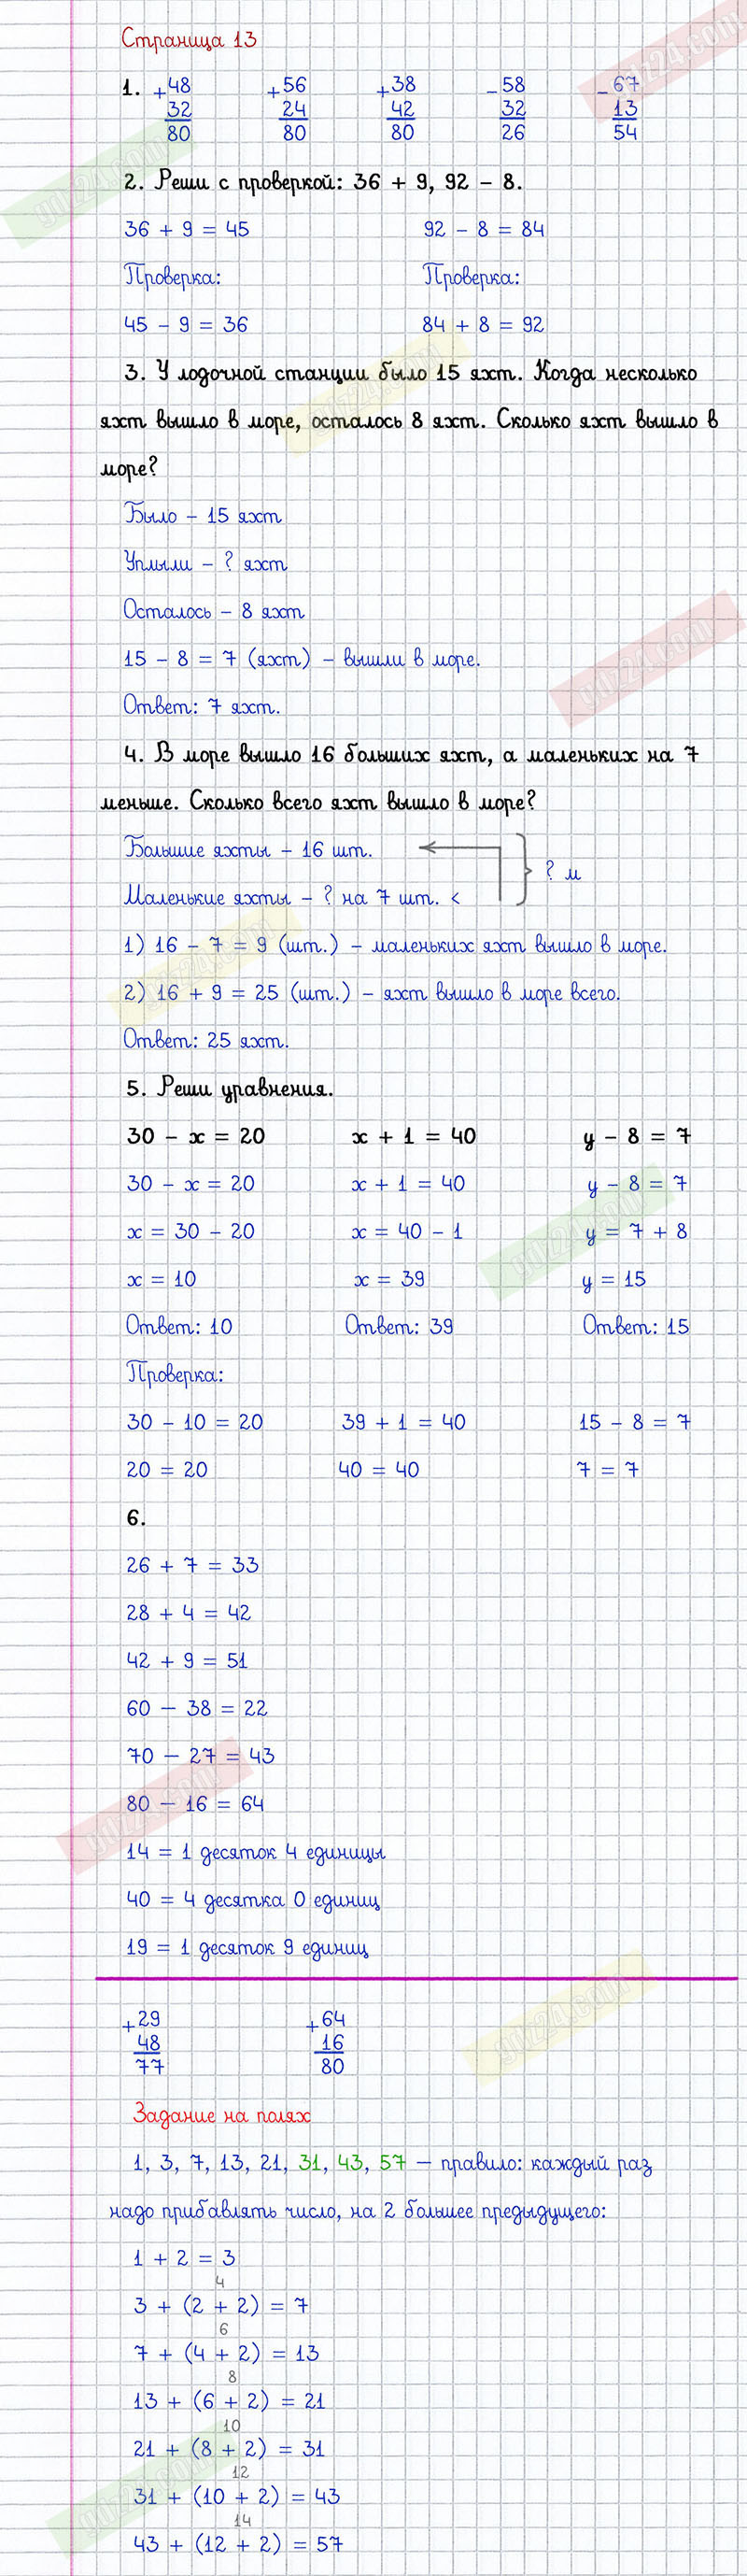 Страница 13
1. +48 +56 +38 -58 -67
32 24 42 32 13
80 80 80 26 54
2. Реши с проверкой: 36 + 9, 92 - 8.
36 + 9 = 45 92 - 8 = 84
Проверка: Проверка:
45 - 9 = 36 84 + 8 = 92
3. У лодочной станции было 15 яхт. Когда несколько
яхт вышло в море, осталось 8 яхт. Сколько яхт вышло в
море?
Было - 15 яхт
Уплыли - ? яхт
Осталось - 8 яхт
15 - 8 = 7 (яхт) - вышли в море.
Ответ: 7 яхт.
4. В море вышло 16 больших яхт, а маленьких на 7
меньше. Сколько всего яхт вышло в море?
Большие яхты - 16 шт.
? м
Маленькие яхты - ? на 7 шт. <
1) 16 - 7 = 9 (шт.) - маленьких яхт вышло в море.
2) 16 + 9 = 25 (шт.) - яхт вышло в море всего.
Ответ: 25 яхт.
5. Реши уравнения.
30 - x = 20 x + 1 = 40 y - 8 = 7
30 - x = 20 x + 1 = 40 y - 8 = 7
x = 30 - 20 x = 40 - 1 y = 7 + 8
x = 10 x = 39 y = 15
Ответ: 10 Ответ: 39 Ответ: 15
Проверка:
30 - 10 = 20 39 + 1 = 40 15 - 8 = 7
20 = 20 40 = 40 7 = 7
6.
26 + 7 = 33
28 + 4 = 42
42 + 9 = 51
60 - 38 = 22
70 - 27 = 43
80 - 16 = 64
14 = 1 десяток 4 единицы
40 = 4 десятка 0 единиц
19 = 1 десяток 9 единиц
+29 +64
48 16
77 80
Задание на полях
1, 3, 7, 13, 21, 31, 43, 57 — правило: каждый раз
надо прибавлять число, на 2 большее предыдущего:
1 + 2 = 3
4
3 + (2 + 2) = 7
6
7 + (4 + 2) = 13
8
13 + (6 + 2) = 21
10
21 + (8 + 2) = 31
12
31 + (10 + 2) = 43
14
43 + (12 + 2) = 57
gdz24.com
gdz24.com
gdz24.com
gdz24.com
gdz24.com
gdz24.com
gdz24.com
gdz24.com
gdz24.com